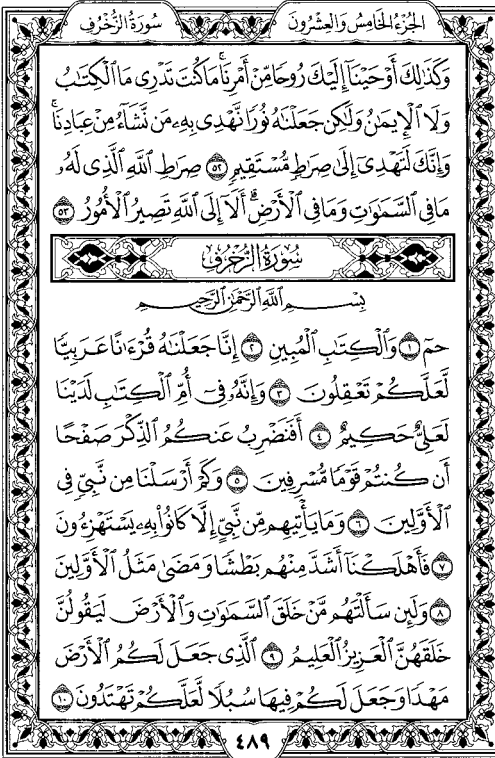 سُورَةُ الزُّخْرُفِ الجُزْءُ الخَامِسُ وَالعِشْرُونَ
وَكَذَٰلِكَ أَوْحَيْنَآ إِلَيْكَ رُوحًا مِّنْ أَمْرِنَا ۚ مَا كُنتَ تَدْرِى مَا ٱلْكِتَٰبُ
وَلَا ٱلْإِيمَٰنُ وَلَٰكِن جَعَلْنَٰهُ نُورًا نَّهْدِى بِهِۦ مَن نَّشَآءُ مِنْ عِبَادِنَا ۚ
وَإِنَّكَ لَتَهْدِىٓ إِلَىٰ صِرَٰطٍ مُّسْتَقِيمٍ ٥٢ صِرَٰطِ ٱللَّهِ ٱلَّذِى لَهُۥ
مَا فِى ٱلسَّمَٰوَٰتِ وَمَا فِى ٱلْأَرْضِ ۗ أَلَآ إِلَى ٱللَّهِ تَصِيرُ ٱلْأُمُورُ ٥٣
سُورَةُ الزُّخْرُفِ
بِسْمِ ٱللَّهِ ٱلرَّحْمَٰنِ ٱلرَّحِيمِ
حمٓ ١ وَٱلْكِتَٰبِ ٱلْمُبِينِ ٢ إِنَّا جَعَلْنَٰهُ قُرْءَٰنًا عَرَبِيًّا
لَّعَلَّكُمْ تَعْقِلُونَ ٣ وَإِنَّهُۥ فِىٓ أُمِّ ٱلْكِتَٰبِ لَدَيْنَا
لَعَلِىٌّ حَكِيمٌ ٤ أَفَنَضْرِبُ عَنكُمُ ٱلذِّكْرَ صَفْحًا
أَن كُنتُمْ قَوْمًا مُّسْرِفِينَ ٥ وَكَمْ أَرْسَلْنَا مِن نَّبِىٍّ فِى
ٱلْأَوَّلِينَ ٦ وَمَا يَأْتِيهِم مِّن نَّبِىٍّ إِلَّا كَانُوا۟ بِهِۦ يَسْتَهْزِءُونَ
٧ فَأَهْلَكْنَآ أَشَدَّ مِنْهُم بَطْشًا وَمَضَىٰ مَثَلُ ٱلْأَوَّلِينَ
٨ وَلَئِن سَأَلْتَهُم مَّنْ خَلَقَ ٱلسَّمَٰوَٰتِ وَٱلْأَرْضَ لَيَقُولُنَّ
خَلَقَهُنَّ ٱلْعَزِيزُ ٱلْعَلِيمُ ٩ ٱلَّذِى جَعَلَ لَكُمُ ٱلْأَرْضَ
مَهْدًا وَجَعَلَ لَكُمْ فِيهَا سُبُلًا لَّعَلَّكُمْ تَهْتَدُونَ ١٠
٤٨٩